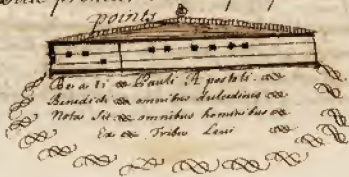 points
Be a ti Pauli A postoli
Benedicti omnibus
Notas Sit omnibus hominibus
Ex Tribu Levi